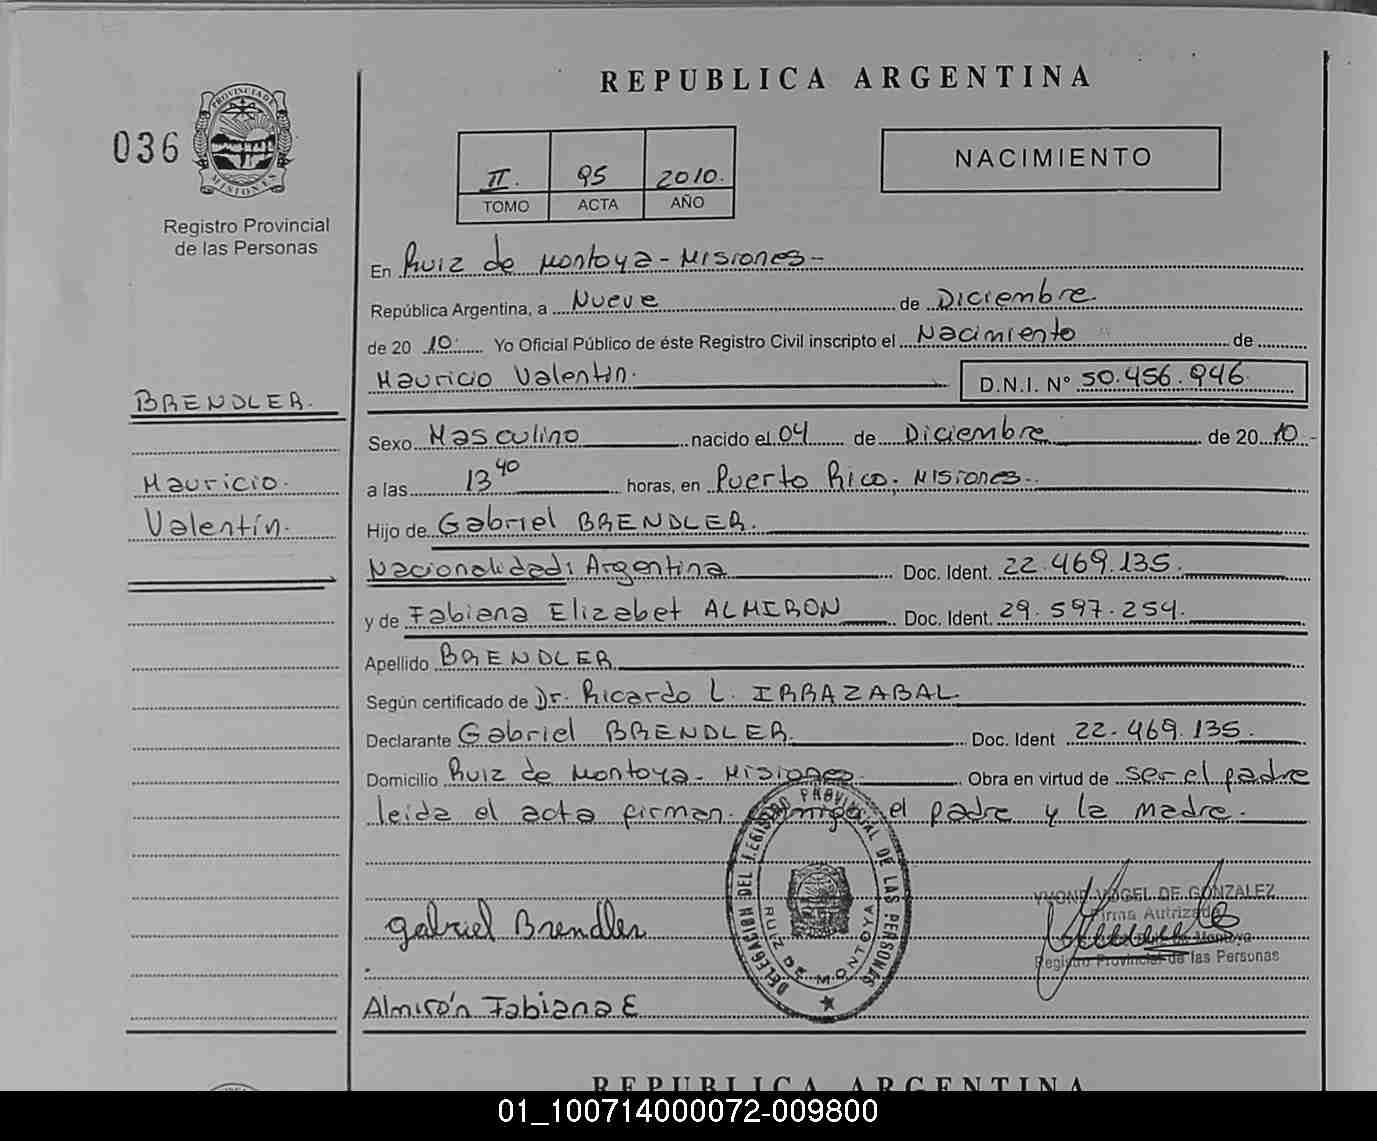 REPUBLICA ARGENTINA
036
PROVINCIA DE
MISIONES
Registro Provincial
de las Personas
II. 95 2010.
TOMO ACTA AÑO
NACIMIENTO
En Ruiz de Montoya - Misiones -
República Argentina, a Nueve de Diciembre
de 20 10 Yo Oficial Público de éste Registro Civil inscripto el Nacimiento de
Mauricio Valentín. D.N.I. N° 50.456.946
BRENDLER.
Mauricio.
Valentín.
Sexo Masculino nacido el 04 de Diciembre de 20 10 -
a las 13 40 horas, en Puerto Rico. Misiones.
Hijo de Gabriel BRENDLER.
Nacionalidad: Argentina Doc. Ident. 22.469.135.
y de Fabiana Elizabet ALMIRON Doc. Ident. 29.597.254.
Apellido BRENDLER
Según certificado de Dr. Ricardo L. IRRAZABAL
Declarante Gabriel BRENDLER. Doc. Ident 22.469.135.
Domicilio Ruiz de Montoya - Misiones Obra en virtud de ser el padre
leida el acta firman conmigo el padre y la madre.
DELEGACION DEL REGISTRO PROVINCIAL DE LAS PERSONAS
RUIZ DE MONTOYA
YVONE VOGEL DE GONZALEZ
Firma Autrizada
de Montoya
Registro Provincial de las Personas
Gabriel Brendler
Almirón Fabiana E
REPUBLICA ARGENTINA
01_100714000072-009800